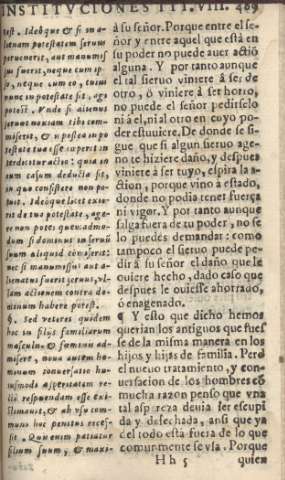 INSTITVCIONES III. VIII. 489
test. Ideoque & si in a-
lienam potestatem seruus
peruenerit, aut manumis
sus fuerit, neque cum ip-
so, neque cum eo, cuius
nunc in potestate sit, age
potest. Vnde si alienus
seruus noxiam tibi com-
miserit, & is postea in po
testate tua esse cœperit in
terdicitur actio: quia in
eum casum deducta sit,
in quo consistere non po-
tuit. Ideoque licet exie-
rit de tua potestate, age-
re non potes quemadmo-
dum si dominus in seruū
suum aliquid cōmiserit:
nec si manumissus aut a-
lienatus fuerit seruus, vl-
lam actionem contra do-
minum habere potest.
¶. Sed veteres quidem
hoc in filijs familiarum
masculis & fœminis ad-
misere, noua autem ho-
minum conuersatio hu-
iusmodi asperitatem re-
cte respuendam esse exi-
stimauit, & ab vsu com-
muni hoc penitus reces-
sit. Quis enim patiatur
filium suum, & maxi-
à su señor. Porque entre el se-
ñor y entre aquel que està en
su poder no puede auer actiō
alguna. Y por tanto aunque
el tal sieruo viniere à ser de
otro, ò viniere à ser horro,
no puede el señor pedirselo
ni à el, ni al otro en cuyo po-
der estuuiere. De donde se si-
gue que si algun sieruo age-
no te hiziere daño, y despues
viniere à ser tuyo, espira la a-
ction, porque vino à estado,
donde no podia tener fuerça
ni vigor. Y por tanto aunque
salga fuera de tu poder, no se
lo puedes demandar: como
tampoco el sieruo puede pe-
dir à su señor el daño que le
ouiere hecho, dado caso que
despues le ouiesse ahorrado,
ò enagenado.
¶ Y esto que dicho hemos
querian los antiguos que fues
se de la misma manera en los
hijos y hijas de familia. Pero
el nueuo tratamiento, y con-
uersacion de los hombres cō
mucha razon penso que vna
tal aspereza deuia ser escupi
da y desechada, ansi que ya
del todo està fuera de lo que
comunmente se vsa. Porque
Hh 5 quien